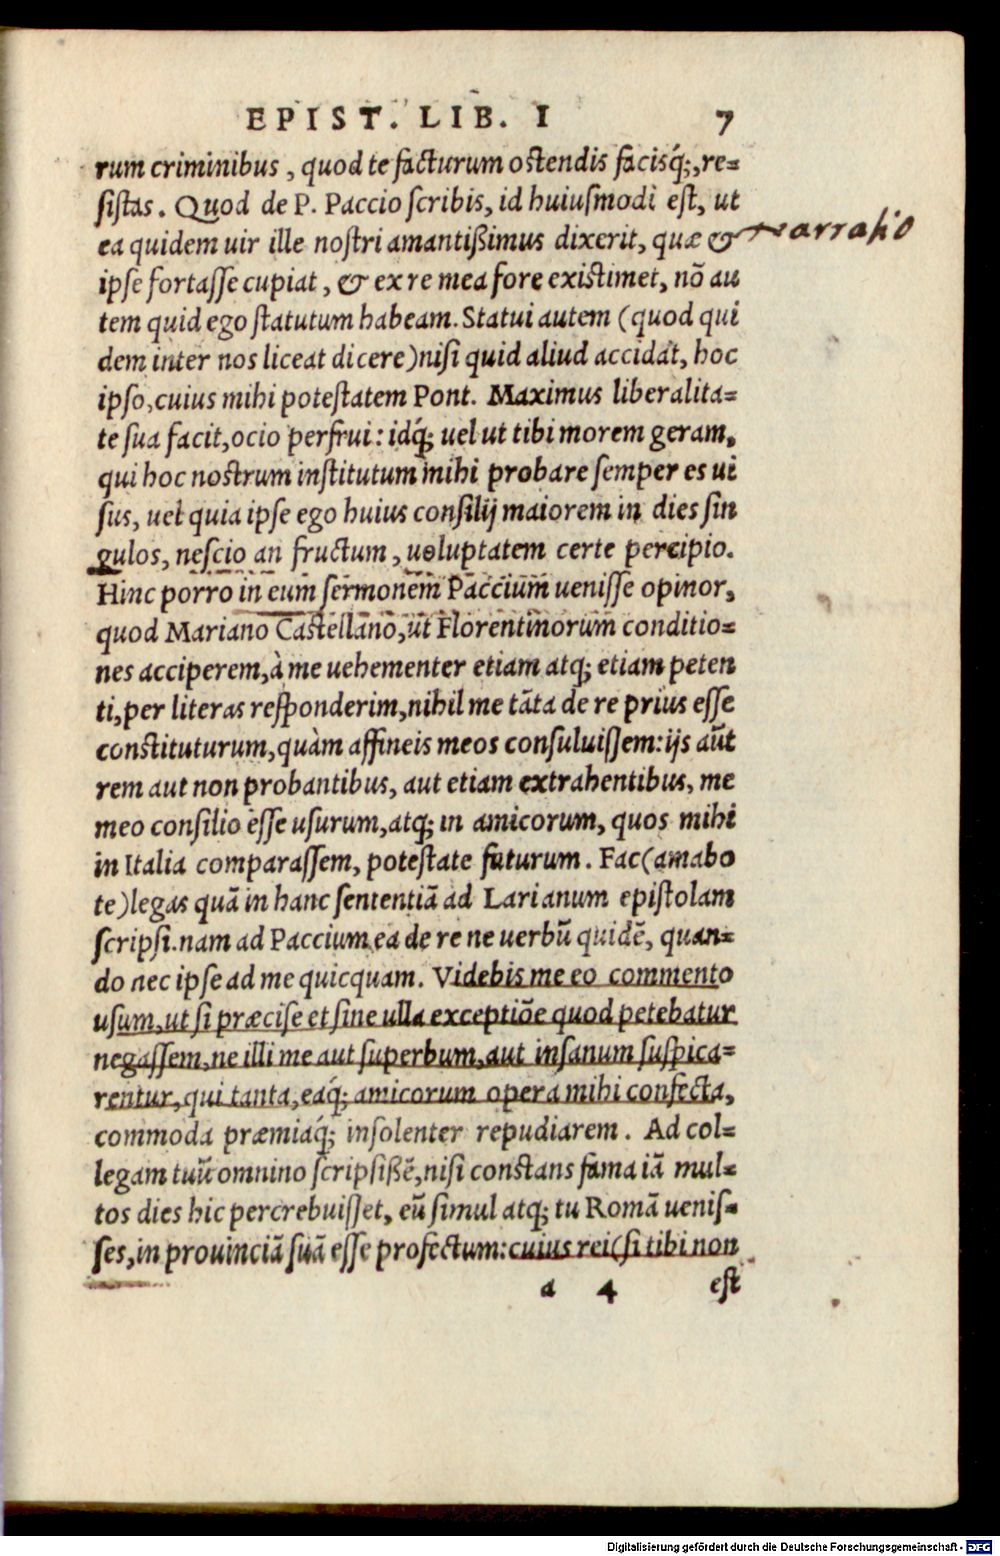 EPIST. LIB. I 7
rum criminibus, quod te facturum ostendis facisq́;, re=
sistas. Quod de P. Paccio scribis, id huiusmodi est, ut
ea quidem uir ille nostri amantißimus dixerit, quæ &
narratio
ipse fortasse cupiat, & ex re mea fore existimet, nõ au
tem quid ego statutum habeam. Statui autem (quod qui
dem inter nos liceat dicere) nisi quid aliud accidat, hoc
ipso, cuius mihi potestatem Pont. Maximus liberalita=
te sua facit, ocio perfrui: idq́; uel ut tibi morem geram,
qui hoc nostrum institutum mihi probare semper es ui
sus, uel quia ipse ego huius consilij maiorem in dies sin
gulos, nescio an fructum, uoluptatem certe percipio.
Hinc porro in eum sermonem Paccium uenisse opinor,
quod Mariano Castellano, ut Florentinorum conditio=
nes acciperem, à me uehementer etiam atq; etiam peten
ti, per literas responderim, nihil me tãta de re prius esse
constituturum, quàm affineis meos consuluissem: ijs aũt
rem aut non probantibus, aut etiam extrahentibus, me
meo consilio esse usurum, atq; in amicorum, quos mihi
in Italia comparassem, potestate futurum. Fac (amabo
te) legas quã in hanc sententiã ad Larianum epistolam
scripsi. nam ad Paccium ea de re ne uerbũ quidẽ, quan=
do nec ipse ad me quicquam. Videbis me eo commento
usum, ut si præcise et sine ulla exceptiõe quod petebatur
negassem, ne illi me aut superbum, aut insanum suspica=
rentur, qui tanta, eaq́; amicorum opera mihi confecta,
commoda præmiaq́; insolenter repudiarem. Ad col=
legam tuũ omnino scripsißẽ, nisi constans fama iã mul=
tos dies hic percrebuisset, eũ simul atq; tu Romã uenis=
ses, in prouinciã suã esse profectum: cuius rei (si tibi non
a 4 est
Digitalisierung gefördert durch die Deutsche Forschungsgemeinschaft - DFG